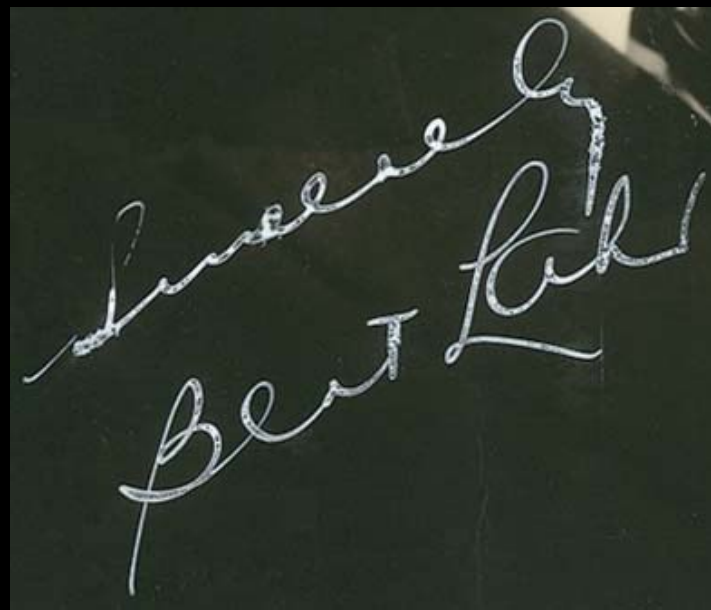 Sincerely
Bert Lahr